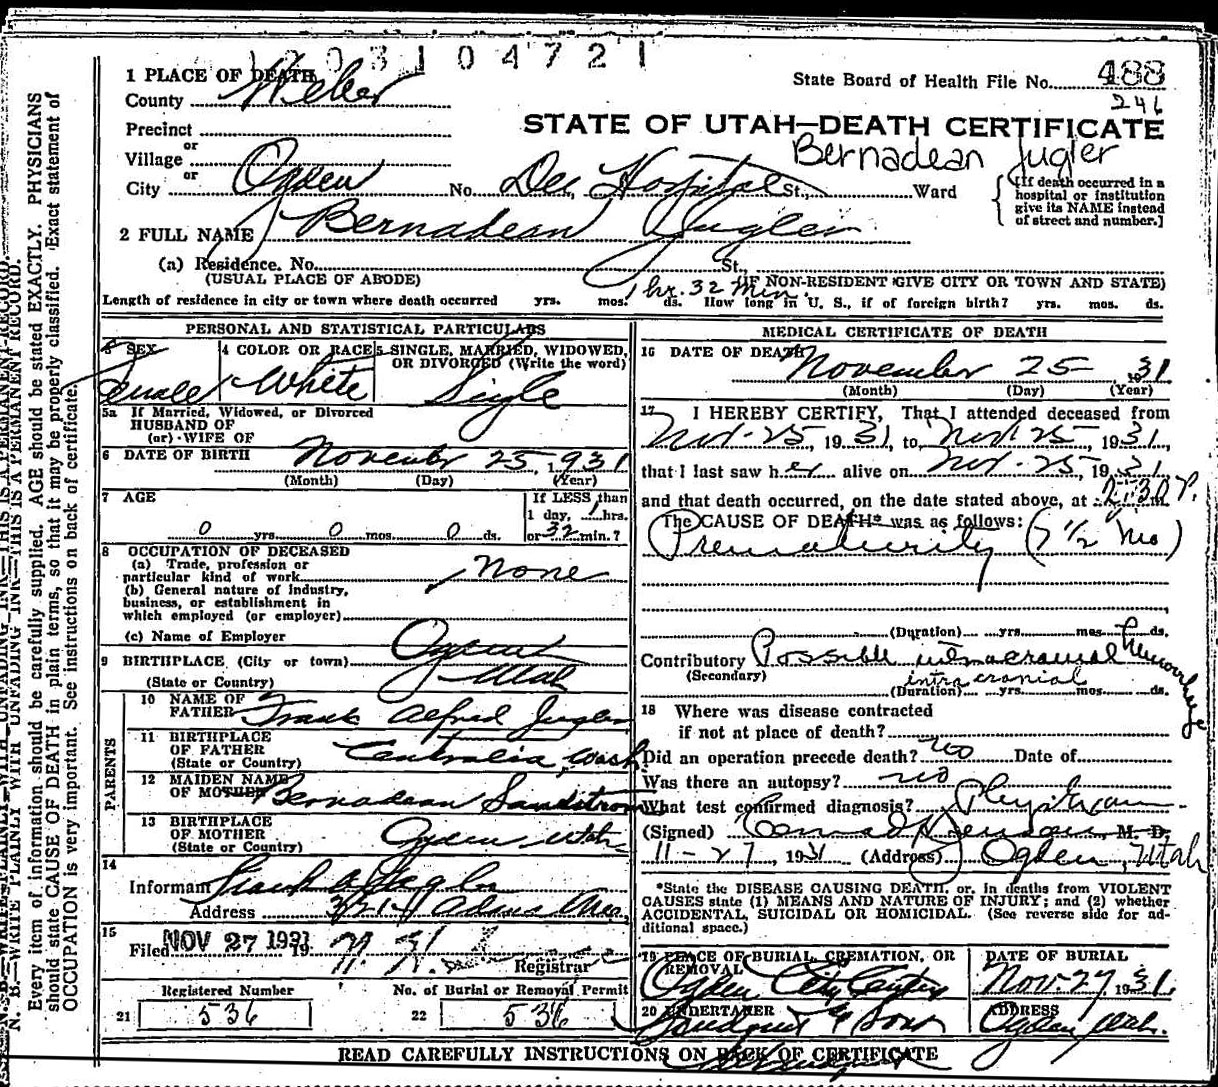 2 0 3 1 0 4 7 2 1
1 PLACE OF DEATH
County Weber
State Board of Health File No. 488
246
STATE OF UTAH—DEATH CERTIFICATE
Bernadean Jugler
Precinct
or
Village
or
City Ogden No. Dee Hospital St., Ward
[If death occurred in a hospital or institution give its NAME instead of street and number.]
2 FULL NAME Bernadean Jugler
(a) Residence. No. St.
(USUAL PLACE OF ABODE) (IF NON-RESIDENT GIVE CITY OR TOWN AND STATE)
1 hr. 32 min.
Length of residence in city or town where death occurred yrs. mos. ds. How long in U. S., if of foreign birth? yrs. mos. ds.
PERSONAL AND STATISTICAL PARTICULARS
3 SEX Female
4 COLOR OR RACE White
5 SINGLE, MARRIED, WIDOWED, OR DIVORCED (Write the word) Single
5a If Married, Widowed, or Divorced
HUSBAND OF
(or) WIFE OF
6 DATE OF BIRTH November 25, 1931
(Month) (Day) (Year)
7 AGE
0 yrs. 0 mos. 0 ds.
If LESS than
1 day, 1 hrs.
or 32 min.?
8 OCCUPATION OF DECEASED
(a) Trade, profession or
particular kind of work None
(b) General nature of industry,
business, or establishment in
which employed (or employer)
(c) Name of Employer
9 BIRTHPLACE (City or town) Ogden
(State or Country) Utah
PARENTS
10 NAME OF FATHER Frank Alfred Jugler
11 BIRTHPLACE OF FATHER (State or Country) Centralia, Wash.
12 MAIDEN NAME OF MOTHER Bernadean Sandstrom
13 BIRTHPLACE OF MOTHER (State or Country) Ogden Utah
14
Informant Frank A Jugler
Address Adams Ave.
15
Filed NOV 27 1931 19
Registrar
Registered Number
21 536
No. of Burial or Removal Permit
22 536
MEDICAL CERTIFICATE OF DEATH
16 DATE OF DEATH November 25 1931
(Month) (Day) (Year)
17 I HEREBY CERTIFY, That I attended deceased from
Nov. 25, 1931, to Nov 25, 1931,
that I last saw her alive on Nov. 25, 1931
and that death occurred, on the date stated above, at m.
The CAUSE OF DEATH* was as follows:
Prematurity (7 1/2 mo)
(Duration) yrs. mos. ds.
Contributory Possible intracranial Hemorrhage
(Secondary) intra cranial
(Duration) yrs. mos. ds.
18 Where was disease contracted
if not at place of death?
Did an operation precede death? no Date of
Was there an autopsy? no
What test confirmed diagnosis? Phys. Exam
(Signed) Conrad H Jenson M. D.
11-27, 1931 (Address) Ogden, Utah
*State the DISEASE CAUSING DEATH, or, in deaths from VIOLENT
CAUSES state (1) MEANS AND NATURE OF INJURY; and (2) whether
ACCIDENTAL, SUICIDAL OR HOMICIDAL. (See reverse side for ad-
ditional space.)
19 PLACE OF BURIAL, CREMATION, OR REMOVAL
Ogden City Cemetery
DATE OF BURIAL
Nov. 27 1931.
20 UNDERTAKER
Lindquist & Sons
ADDRESS
Ogden Utah.
READ CAREFULLY INSTRUCTIONS ON BACK OF CERTIFICATE
N. B.—WRITE PLAINLY WITH UNFADING INK—THIS IS A PERMANENT RECORD.
Every item of information should be carefully supplied. AGE should be stated EXACTLY. PHYSICIANS
should state CAUSE OF DEATH in plain terms, so that it may be properly classified. Exact statement of
OCCUPATION is very important. See instructions on back of certificate.